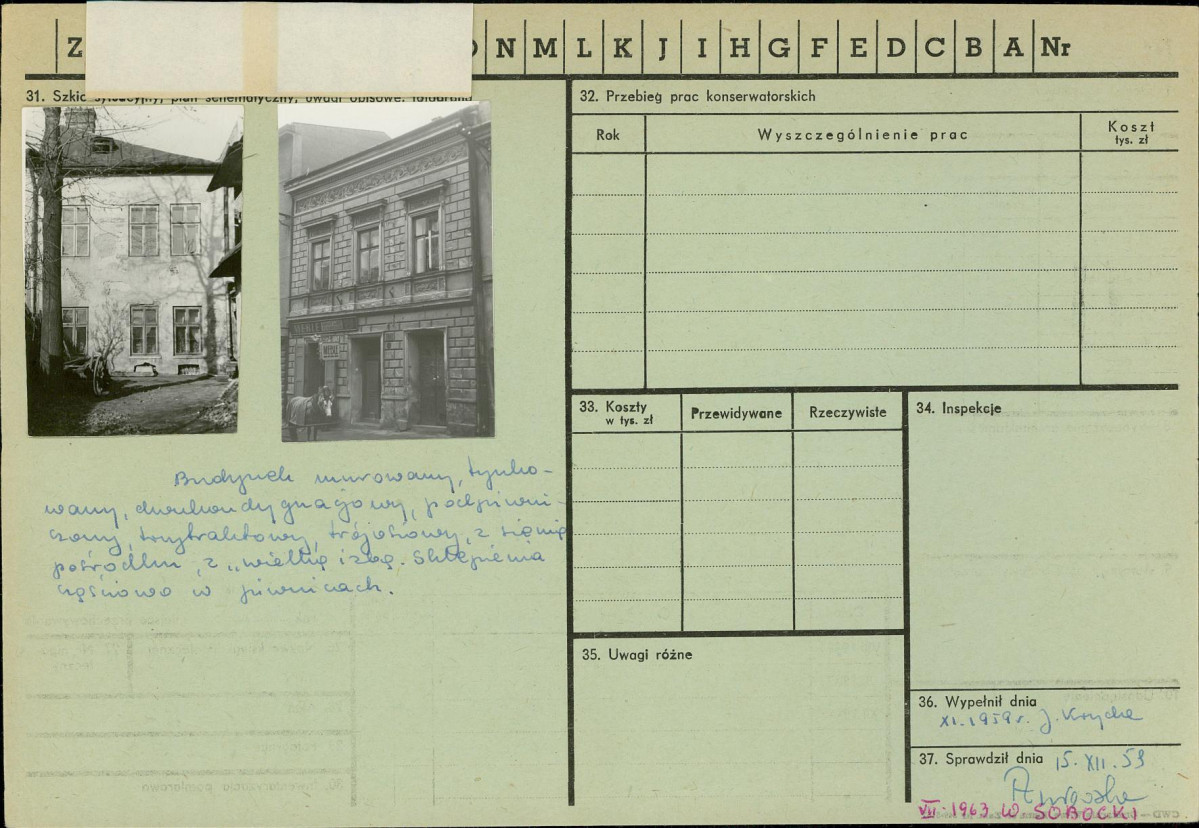 Z N M L K J I H G F E D C B A Nr
31. Szkic sytuacyjny, plan schematyczny, uwagi opisowe, fotografia
32. Przebieg prac konserwatorskich
Rok Wyszczególnienie prac Koszt
tys. zł
MEBLE
Budynek murowany, tynko-
wany, dwukondygnacjowy, podpiwni-
czony, trzytraktowy, trójosiowy, z sienią
pośrodku, z „wielką izbą. Sklepienia
częściowo w piwnicach.
33. Koszty
w tys. zł
Przewidywane Rzeczywiste
34. Inspekcje
35. Uwagi różne
36. Wypełnił dnia
XI. 1959 r. J. Krycha
37. Sprawdził dnia 15. XII. 59
VII. 1963 W SOBOCKI